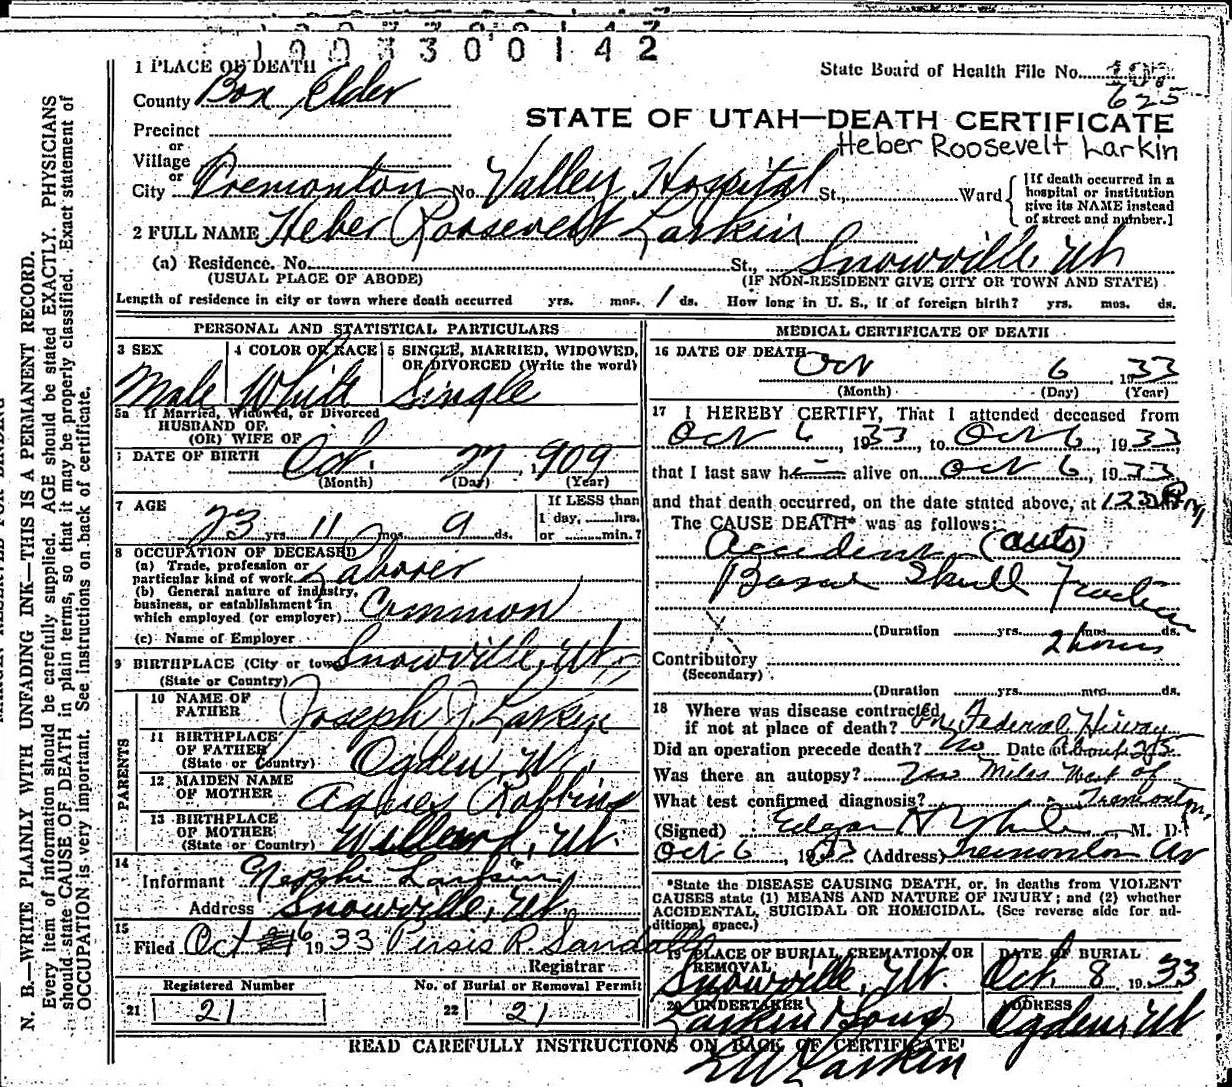 1003300142
1 PLACE OF DEATH
State Board of Health File No.
625
County Box Elder
STATE OF UTAH—DEATH CERTIFICATE
Heber Roosevelt Larkin
Precinct
or
Village
or
City Tremonton No. Valley Hospital St., Ward
[If death occurred in a
hospital or institution
give its NAME instead
of street and number.]
2 FULL NAME Heber Roosevelt Larkin
(a) Residence. No. St., Snowville, Ut
(USUAL PLACE OF ABODE) (IF NON-RESIDENT GIVE CITY OR TOWN AND STATE)
Length of residence in city or town where death occurred yrs. mos. 1 ds. How long in U. S., if of foreign birth? yrs. mos. ds.
PERSONAL AND STATISTICAL PARTICULARS
3 SEX 4 COLOR OR RACE 5 SINGLE, MARRIED, WIDOWED,
OR DIVORCED (Write the word)
Male White Single
5a If Married, Widowed, or Divorced
HUSBAND OF
(OR) WIFE OF
DATE OF BIRTH Oct. 27, 1909
(Month) (Day) (Year)
7 AGE If LESS than
1 day, hrs.
23 yrs 11 mos. 9 ds. or min.?
8 OCCUPATION OF DECEASED
(a) Trade, profession or
particular kind of work Laborer
(b) General nature of industry,
business, or establishment in
which employed (or employer) Common
(c) Name of Employer
9 BIRTHPLACE (City or town Snowville, Ut.
(State or Country)
PARENTS
10 NAME OF
FATHER Joseph J. Larkin
11 BIRTHPLACE
OF FATHER
(State or Country) Ogden, Ut.
12 MAIDEN NAME
OF MOTHER Agnes Robbins
13 BIRTHPLACE
OF MOTHER
(State or Country) Willard, Ut.
14
Informant Nephi Larkin
Address Snowville, Ut.
15
Filed Oct 6 1933 Persis R. Sandall
Registrar
Registered Number No. of Burial or Removal Permit
21 21 22 21
MEDICAL CERTIFICATE OF DEATH
16 DATE OF DEATH
Oct 6 1933
(Month) (Day) (Year)
17 I HEREBY CERTIFY, That I attended deceased from
Oct 6, 1933, to Oct 6, 1933,
that I last saw h alive on Oct 6, 1933
and that death occurred, on the date stated above, at
The CAUSE DEATH* was as follows:
Accident (auto)
Basal Skull Fracture
(Duration yrs. mos. ds.
2 hours
Contributory
(Secondary)
(Duration yrs. mos. ds.
18 Where was disease contracted
if not at place of death? On Federal Hiway
Did an operation precede death? No Date of about
Was there an autopsy? Miles West of
What test confirmed diagnosis? Tremonton
(Signed) Edgar H, M. D.
Oct 6, 1933 (Address) Tremonton Ut
*State the DISEASE CAUSING DEATH, or, in deaths from VIOLENT
CAUSES state (1) MEANS AND NATURE OF INJURY; and (2) whether
ACCIDENTAL, SUICIDAL OR HOMICIDAL. (See reverse side for ad-
ditional space.)
19 PLACE OF BURIAL, CREMATION, OR
REMOVAL DATE OF BURIAL
Snowville, Ut. Oct. 8 1933
20 UNDERTAKER ADDRESS
Larkin & Sons Ogden, Ut
READ CAREFULLY INSTRUCTIONS ON BACK OF CERTIFICATE
Larkin
N. B.—WRITE PLAINLY WITH UNFADING INK—THIS IS A PERMANENT RECORD.
Every item of information should be carefully supplied. AGE should be stated EXACTLY. PHYSICIANS
should state CAUSE OF DEATH in plain terms, so that it may be properly classified. Exact statement of
OCCUPATION is very important. See instructions on back of certificate.